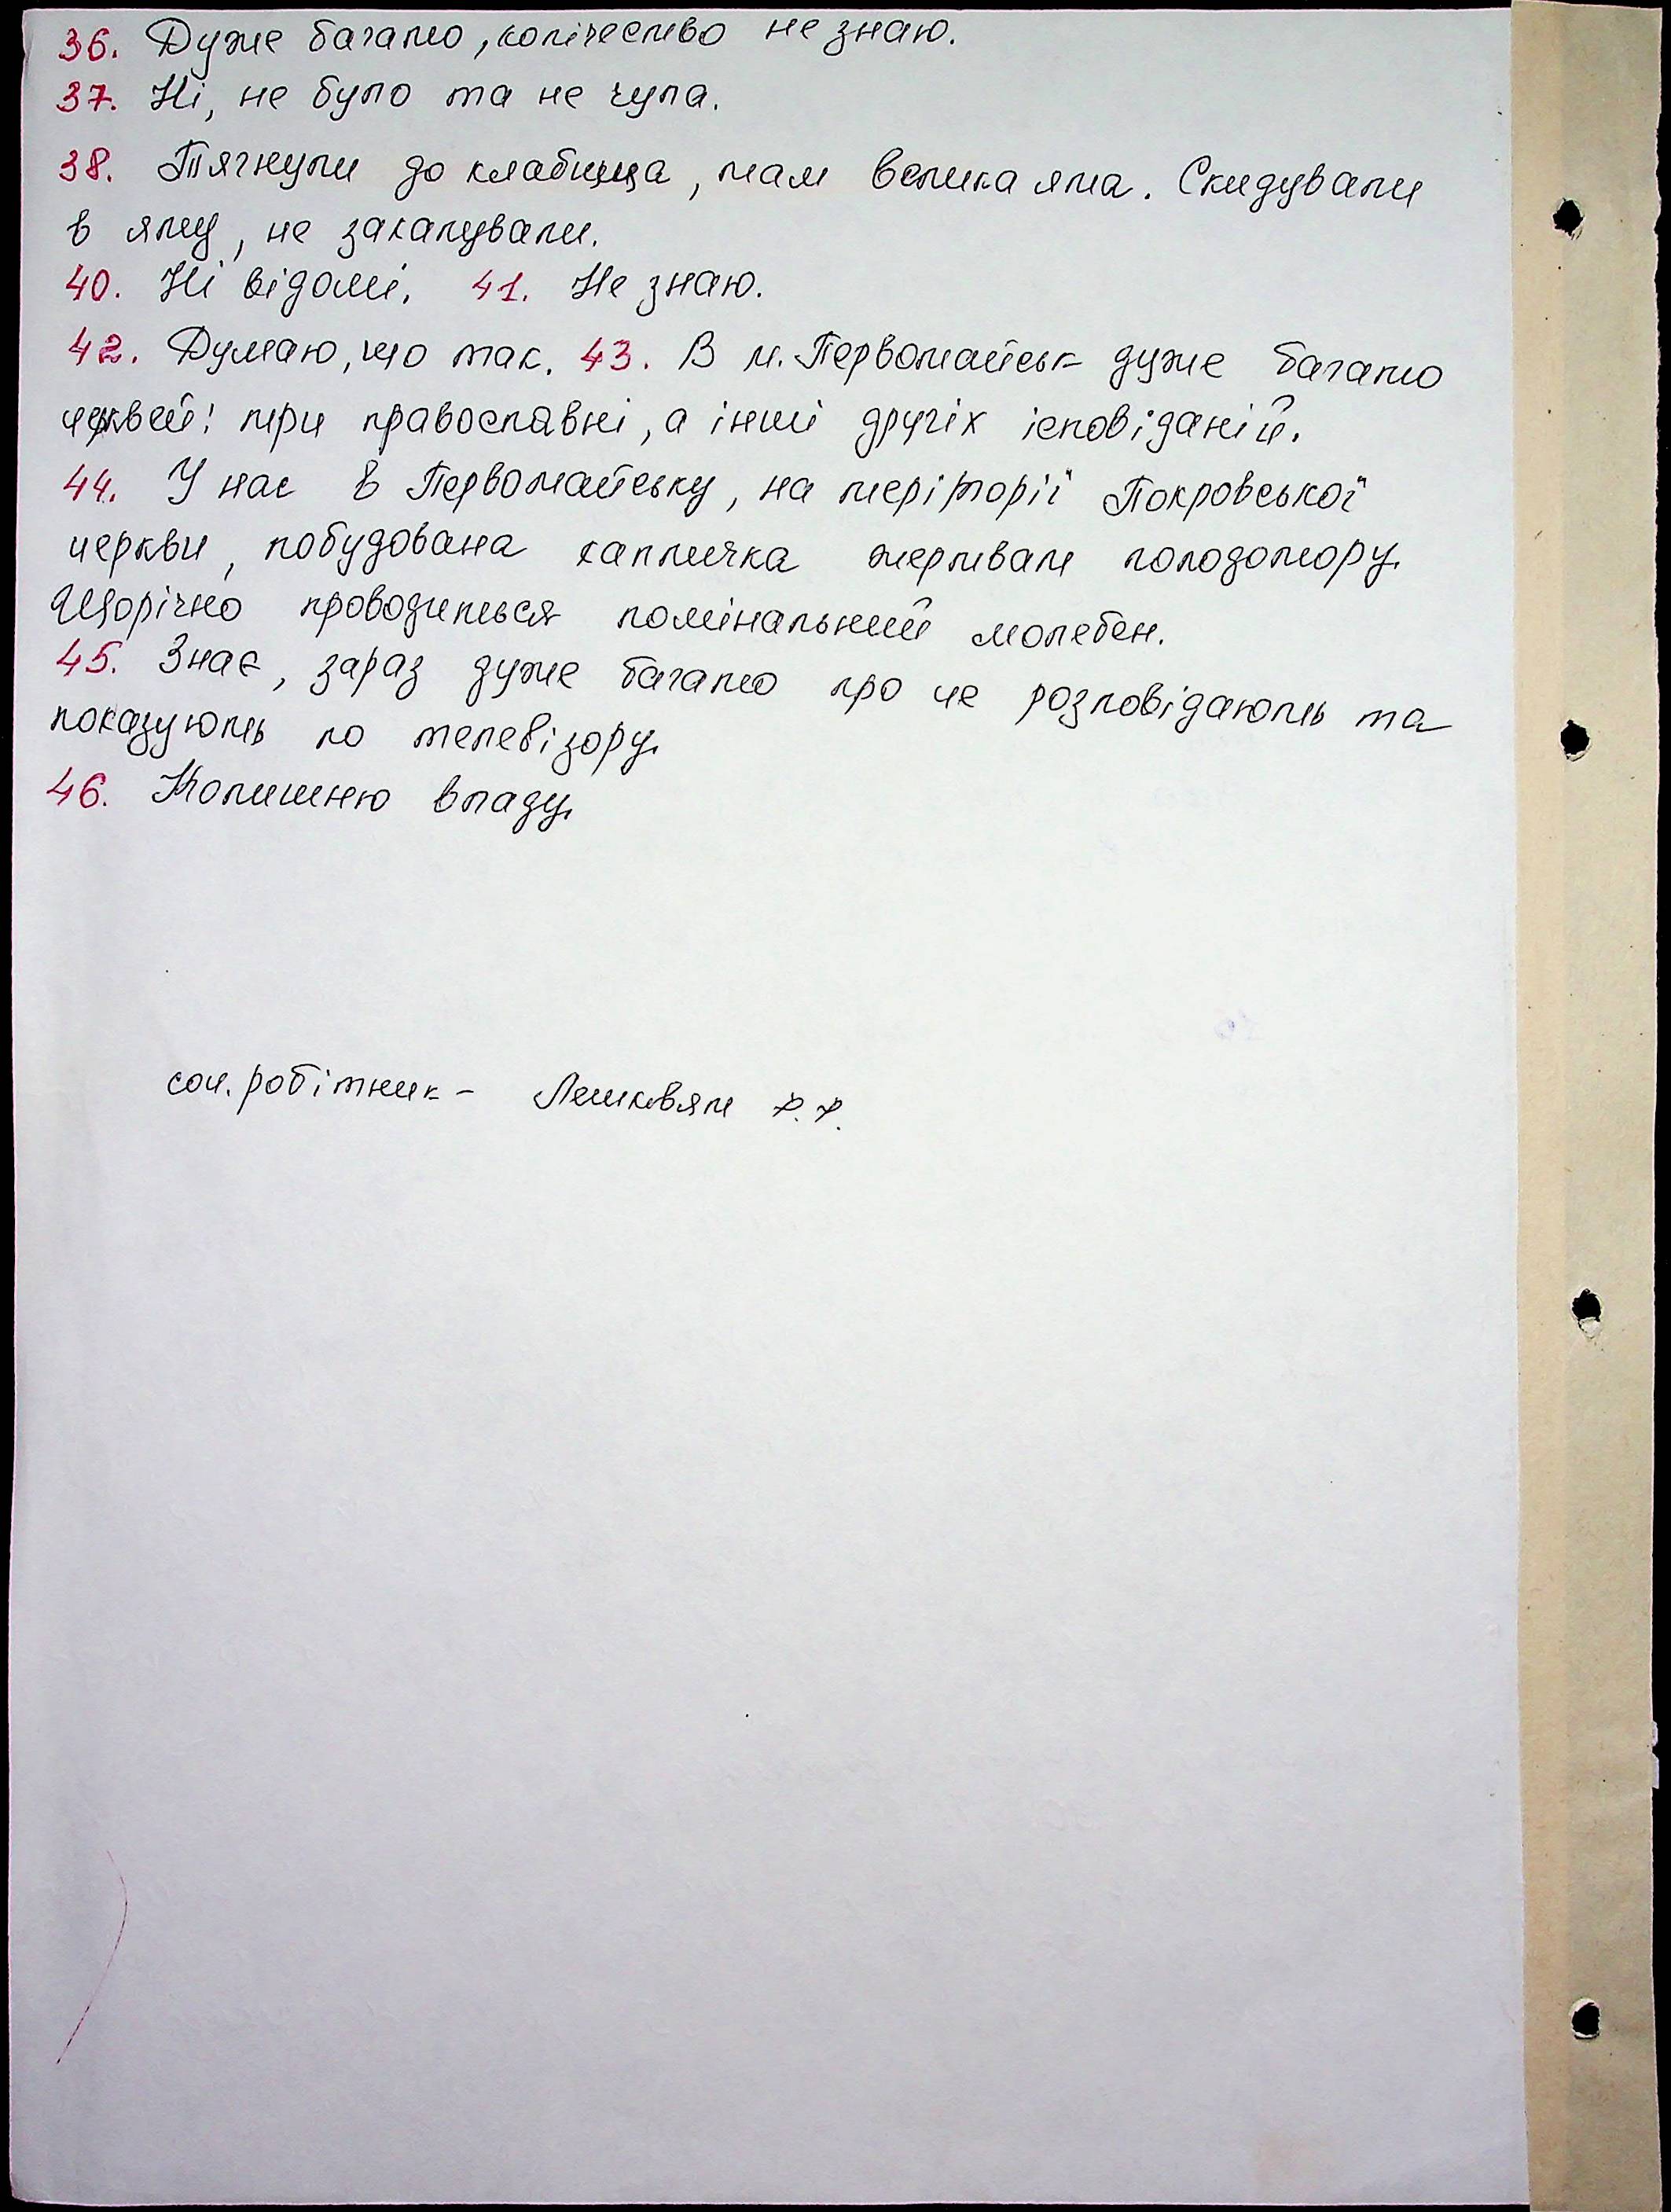 36. Дуже багато, колічество не знаю.
37. Ні, не було та не чула.
38. Тягнули до клабища, там велика яма. Скидували
в яму, не закапували.
40. Ні відомі. 41. Не знаю.
42. Думаю, що так. 43. В м. Первомайськ дуже багато
церквей: три православні, а інші другіх ісповіданій.
44. У нас в Первомайську, на теріторії Покровської
церкви, побудована капличка жертвам голодомору.
Щорічно проводиться помінальний молебен.
45. Знає, зараз дуже багато про це розповідають та
показують по телевізору.
46. Колишню владу.
соц. робітник -